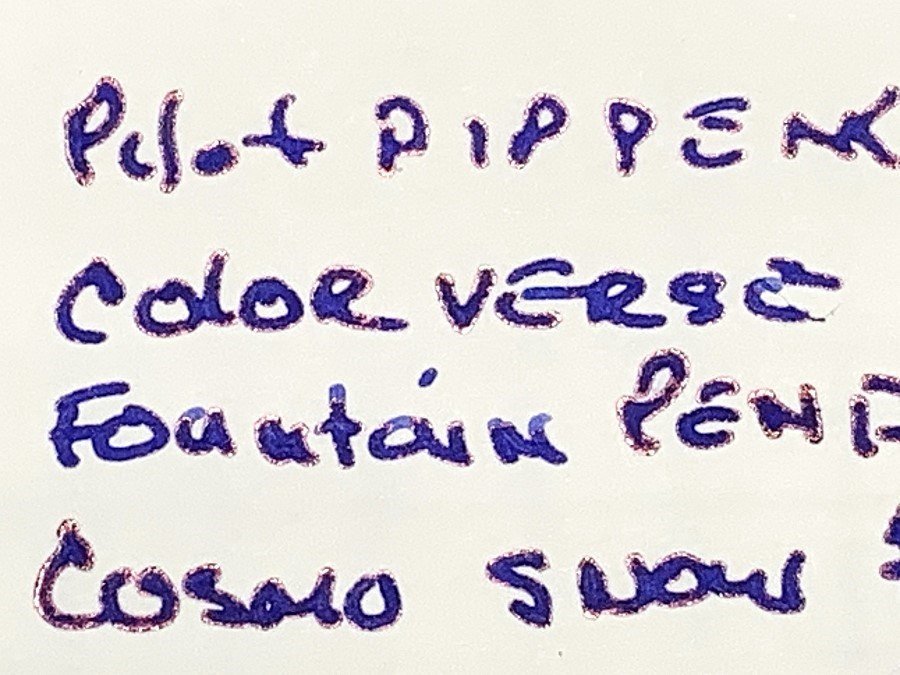 Pilot DIPPEN
COLOR VERSE
Fountain PEN
Cosmo SNOW